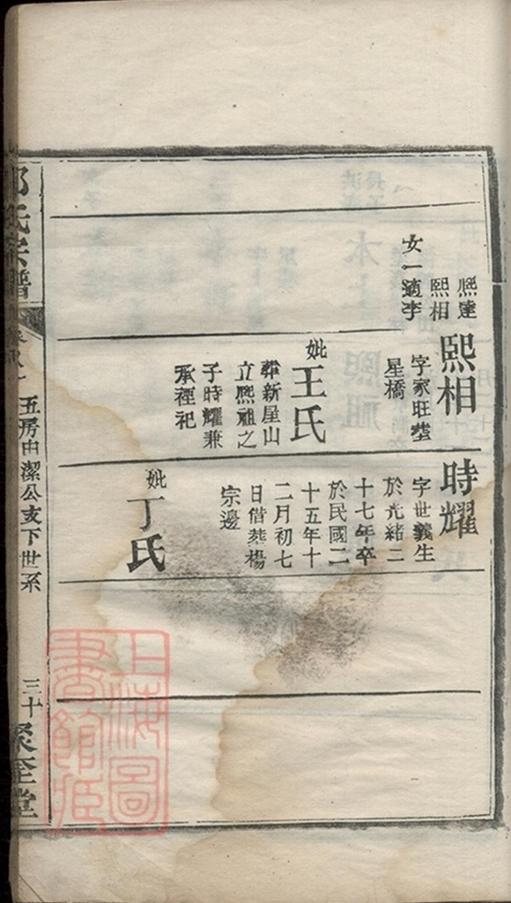 熙達
熙相
女一適李
熙相
字家旺塟
星橋
妣王氏
葬新屋山
立熙祖之
子時耀兼
承禋祀
時耀
字世義生
於光緒二
十七年卒
於民國二
十五年十
二月初七
日偕葬楊
宗邊
妣丁氏
氏宗譜
五房由潔公支下世系
三十
聚奎堂
上海圖
書館